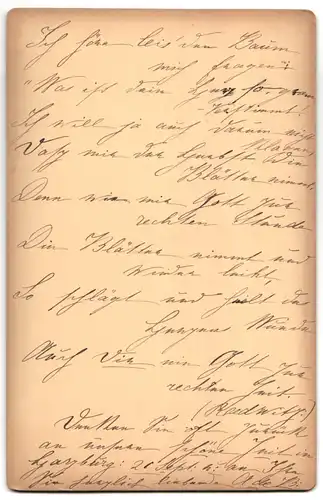 Ich höre leis' den Baum
mich fragen:
"Was ist dein Herz so gram
verstimmt?
Ich will ja auch darum nicht
klagen
Daß mir der Herbst die
Blätter nimmt,
Denn wie mir Gott zur
rechten Stunde
Die Blätter nimmt und
wieder leiht,
So schlägt und heilt des
Herzens Wunde
Auch dir ein Gott zur
rechten Zeit.
(Redwitz.)
Denken Sie oft zurück
an unsere schöne Zeit in
Harzburg: 20 Sept. u. an Ihre
Sie herzlich liebende